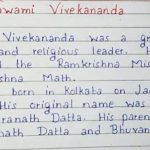 Swami Vivekananda
Vivekananda was a gr
and religious leader.
the Ramkrishna Mis
shna Math.
born in Kolkata on Ja
His original name was
ranath Datta. His paren
nath Datta and Bhuvan